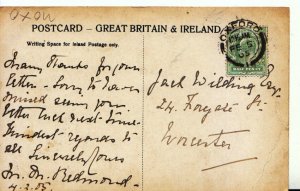 OXON
POSTCARD — GREAT BRITAIN & IRELAND
Writing Space for Inland Postage only.
HALF PENNY
Many thanks for your
letter - Sorry to have
missed seeing you.
better luck next time
Kindest regards to
all Sincerely yours
Redmond
Jack Wilding Esq.
24, Foregate St
Worcester